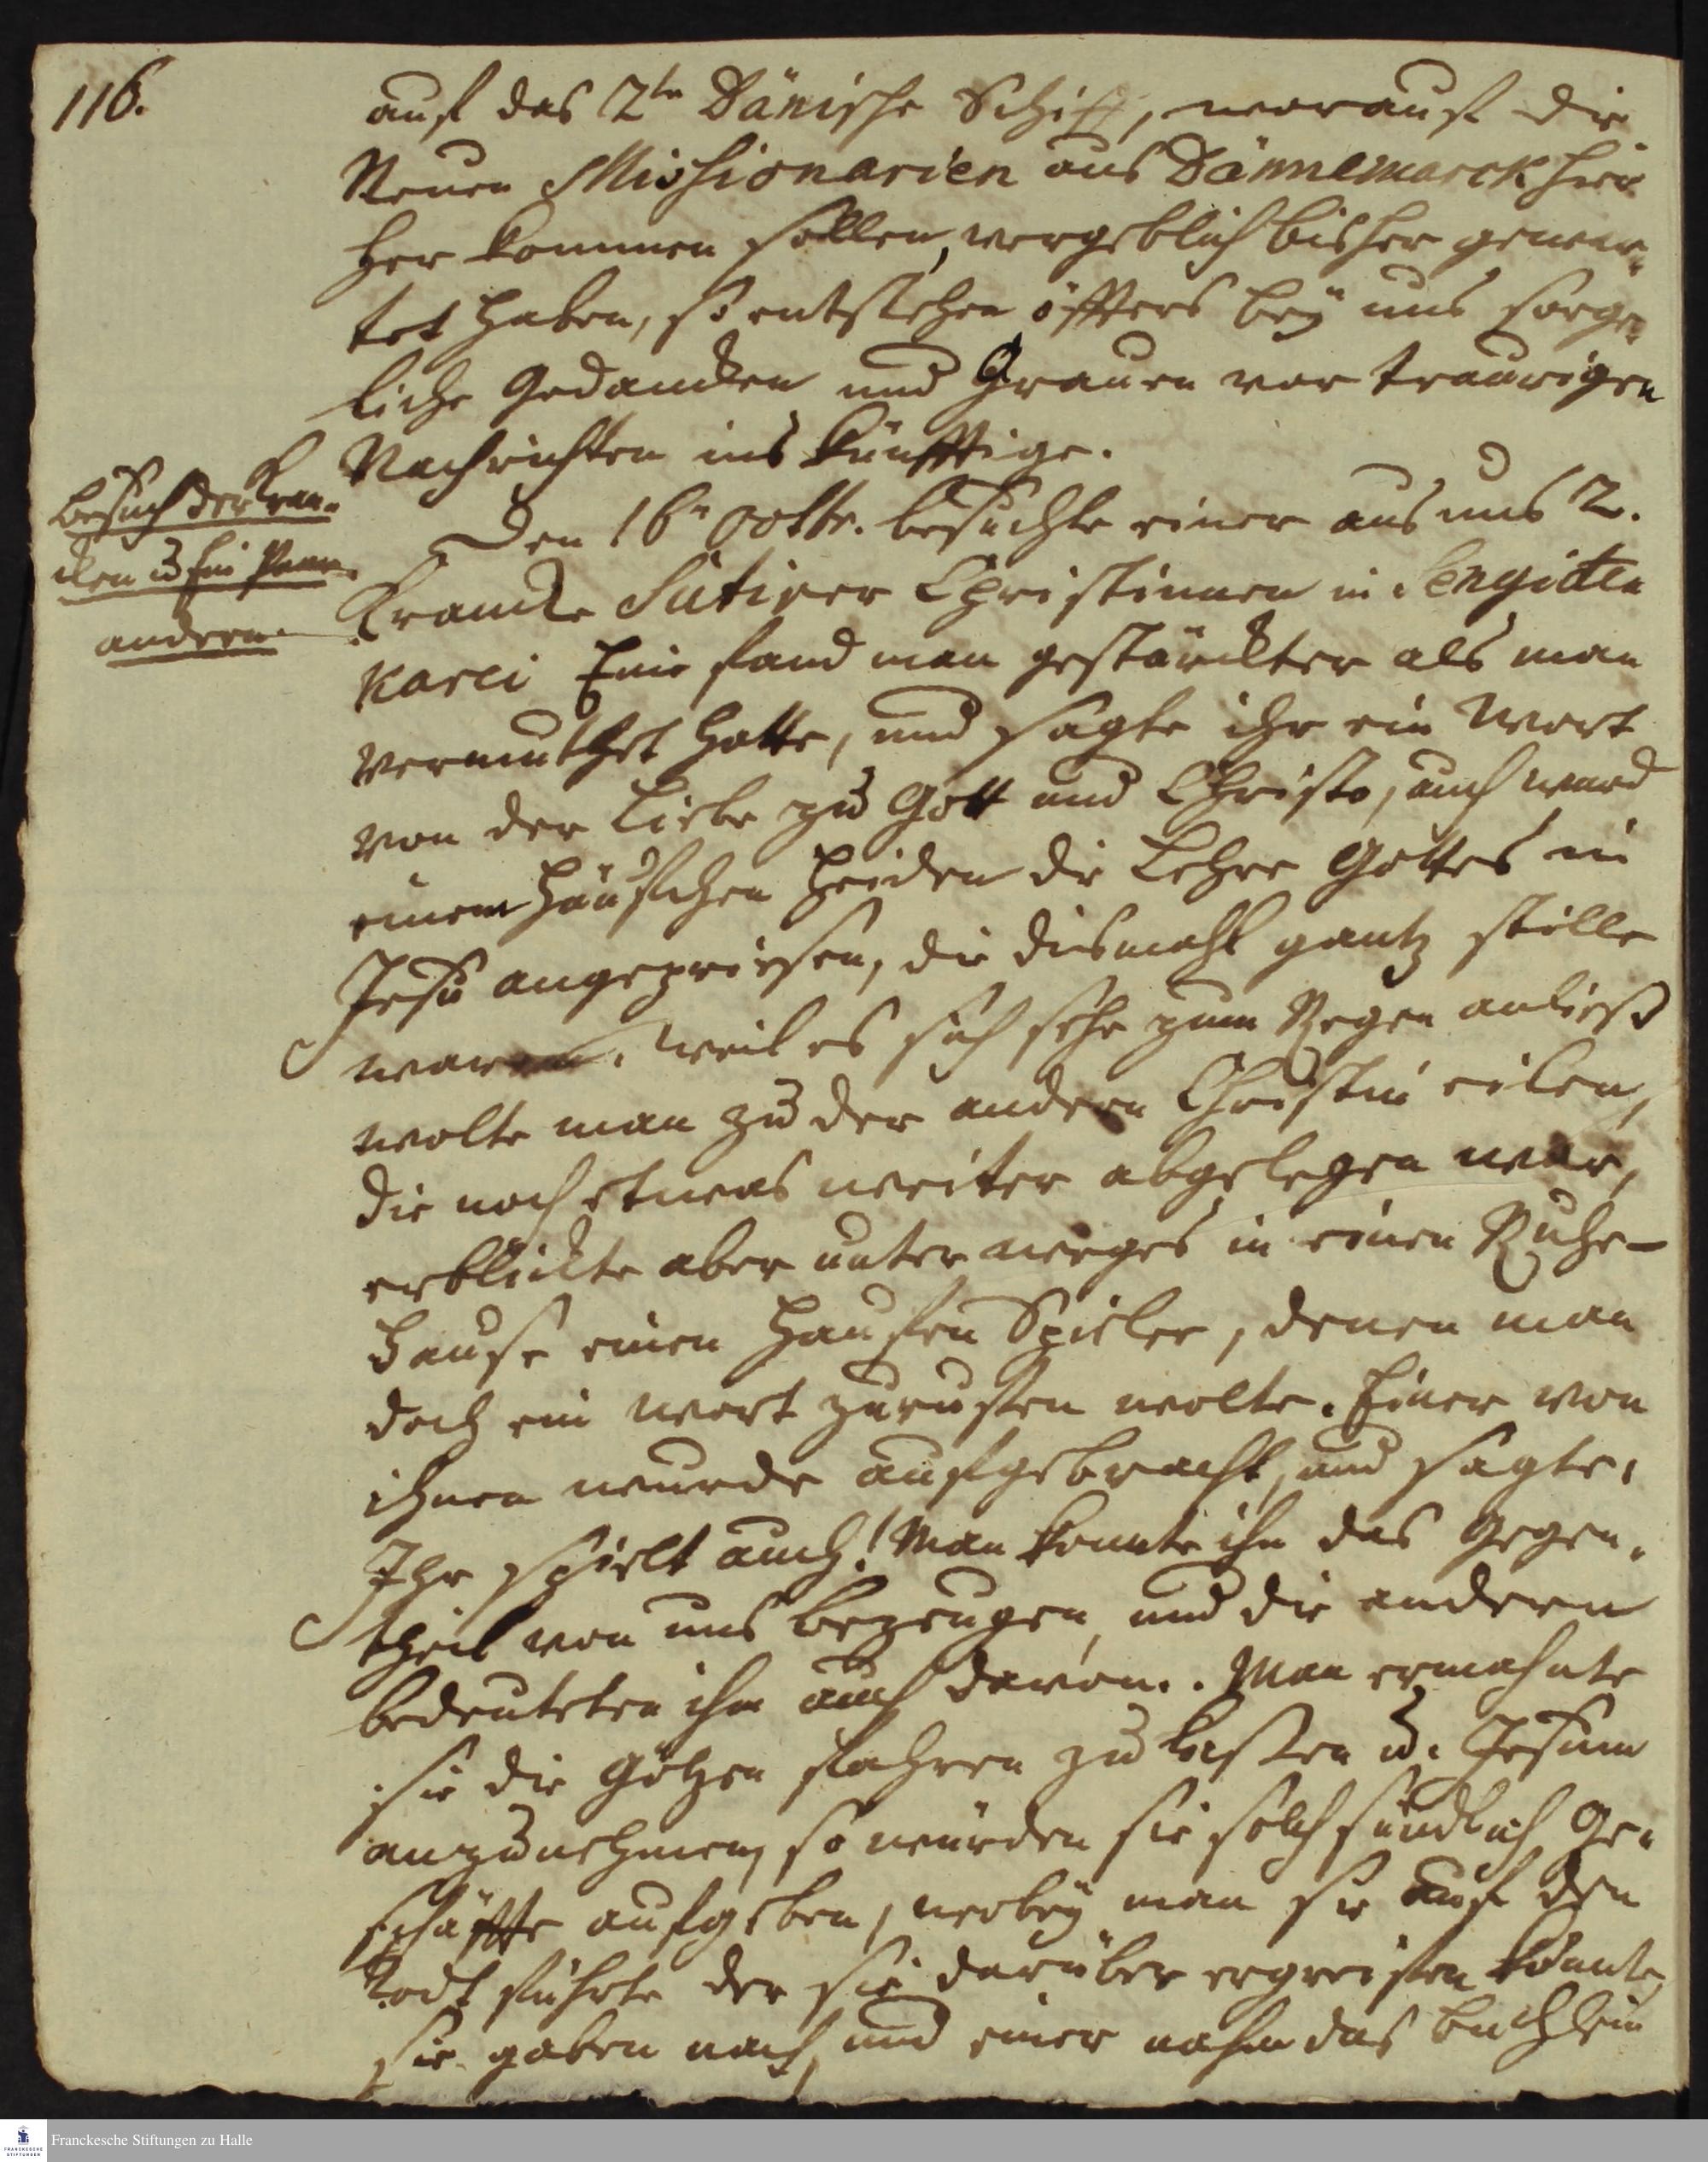 116.
auf das 2te Dänische Schiff, worauf die
Neuen Missionarien aus Dännemarck hie
her kommen sollen, vergeblich bisher gewar-
tet haben, so entstehen öffters bey uns sorge-
liche Gedancken und Grauen vor traurigen
Nachrichten ins künfftige.
Besuch der Kran-
cken u
andern.
Den 16n Octbr. besuchte einer aus uns 2.
Krancke Sutirer Christinnen in Sengiden
karei Eine fand man gestärckter als man
vermuthet hatte, und sagte ihr ein Wort
von der Liebe zu Gott und Christo, auch ward
einem Häuffchen Heiden die Lehre Gottes in
Jesu angepriesen, die diesmahl gantz stille
waren. Weil es sich sehr zum Regen anließ
wolte man zu der andern Christin eilen,
die noch etwas weiter abgelegen war,
erblickte aber unterweeges in einen Ruhe-
hause einen Hauffen Spieler, denen man
doch ein wort zuruffen wolte. Einer von
ihnen wurde aufgebracht, und sagte,
Ihr spielt auch! Man konnte ihn das Gegen-
theil von uns bezeugen, und die andern
bedeuteten ihn auch davon. Man ermahnte
sie die Götzen fahren zu lassen u. Jesum
anzunehmen, so würden sie solch sündlich Ge-
schäffte aufgeben, wobey man sie auf den
Todt führte der sie darüber ergreiffen könnte,
sie gaben nach, und einer nahm das Büchlein
Franckesche Stiftungen zu Halle